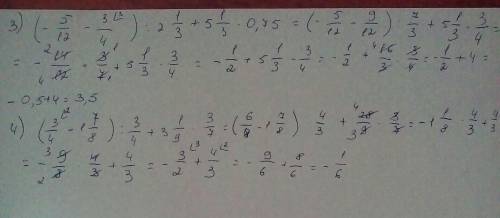 3) (- 5/12 - 3/4) : 2 1/3 + 5 1/3 · 0,75 = (- 5/12 - 9/12) : 7/3 + 5 1/3 · 3/4 =
= - 14/12 · 3/7 + 5 1/3 · 3/4 = - 1/2 + 5 1/3 · 3/4 = - 1/2 + 16/3 · 3/4 = - 1/2 + 4 =
- 0,5+4 = 3,5
4) (3/4 - 1 7/8) : 3/4 + 3 1/9 · 3/7 = (6/8 - 1 7/8) · 4/3 + 28/9 · 3/7 = - 1 1/8 · 4/3 + 4/3
= - 9/8 · 4/3 + 4/3 = - 3/2 + 4/3 = - 9/6 + 8/6 = - 1/6